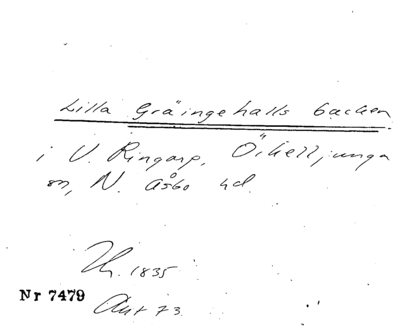 Lilla Gräingehalls backen
i V. Ringarp, Örkelljunga
sn, N. Åsbo hd.
Th. 1835
Nr 7479
Ant 73.